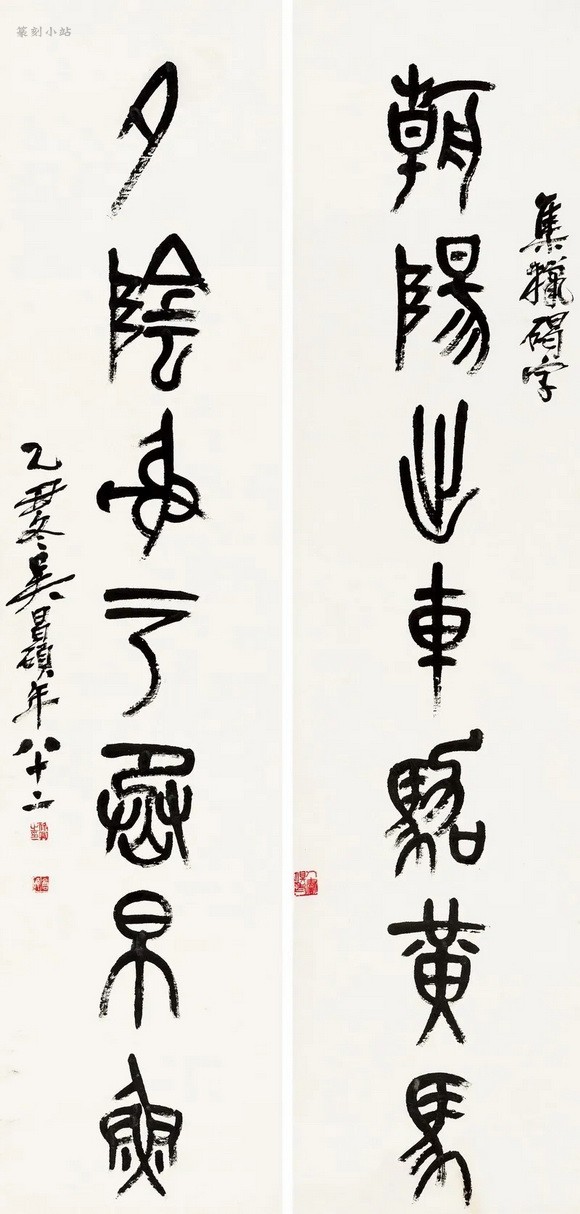 集獵碣字
朝陽出車駱黃馬
夕陰射于帛魚
乙丑冬吳昌碩年八十二
篆刻小站